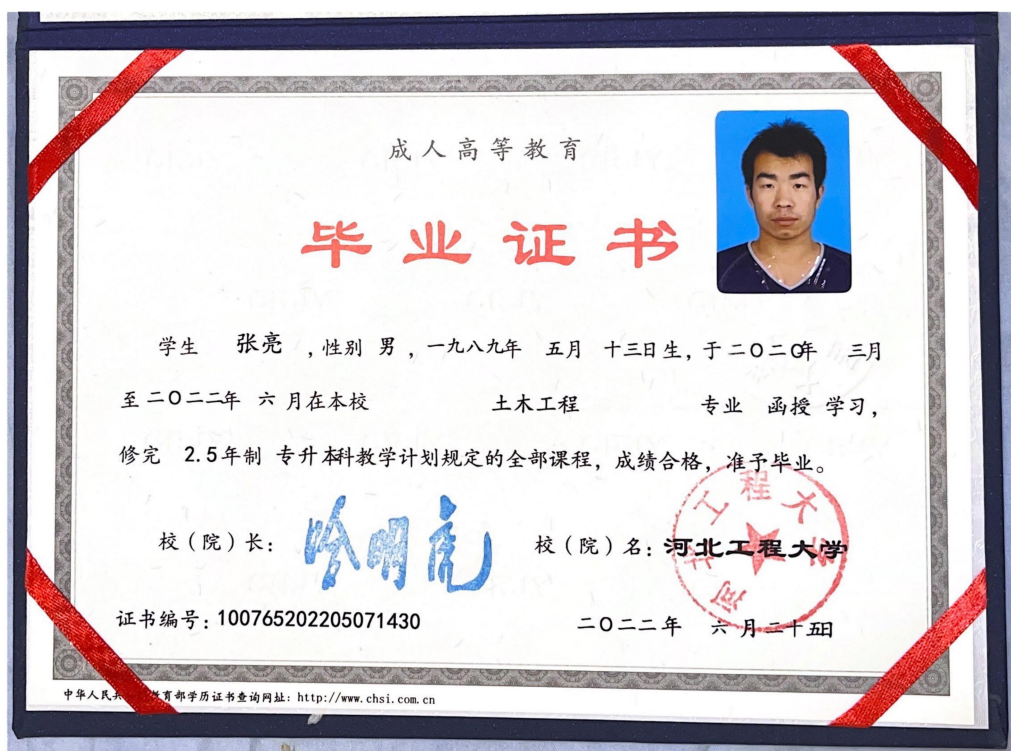 成人高等教育
毕业证书
学生 张亮 ，性别 男 ，一九八九年 五月 十三日生，于二〇二〇年 三月
至二〇二二年 六月在本校 土木工程 专业 函授 学习，
修完 2.5年制 专升本科教学计划规定的全部课程，成绩合格，准予毕业。
校（院）长： 哈明虎 校（院）名：河北工程大学
河北工程大学
证书编号：100765202205071430 二〇二二年 六月二十五日
中华人民 教育部学历证书查询网址：http://www.chsi.com.cn